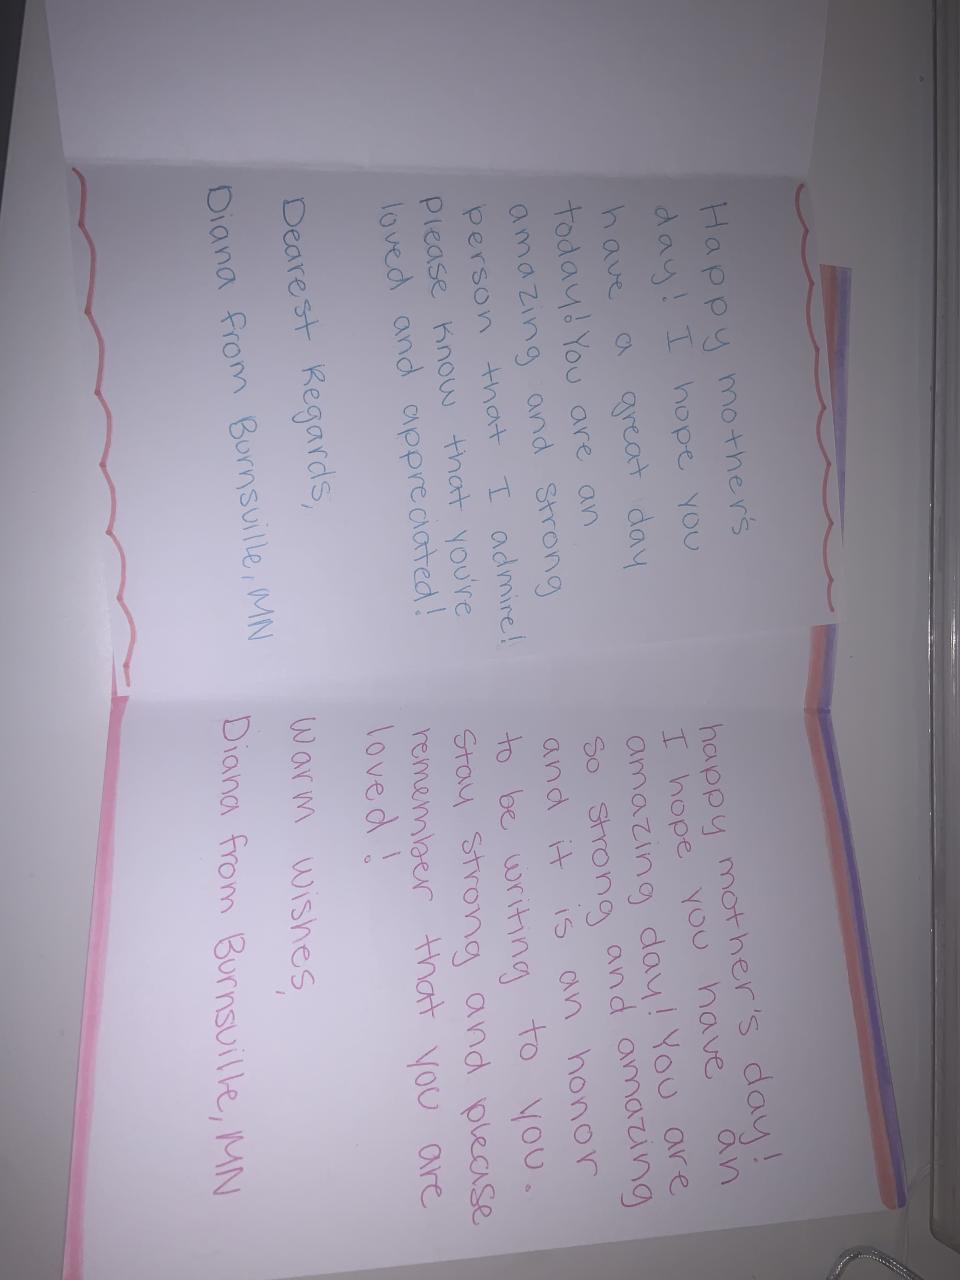 Happy mother's
day! I hope you
have a great day
today! You are an
amazing and strong
person that I admire!
please know that you're
loved and appreciated!
Dearest Regards,
Diana from Burnsville, MN
happy mother's day!
I hope you have an
amazing day! You are
so strong and amazing
and it is an honor
to be writing to you.
Stay strong and please
remember that you are
loved!
Warm wishes,
Diana from Burnsville, MN